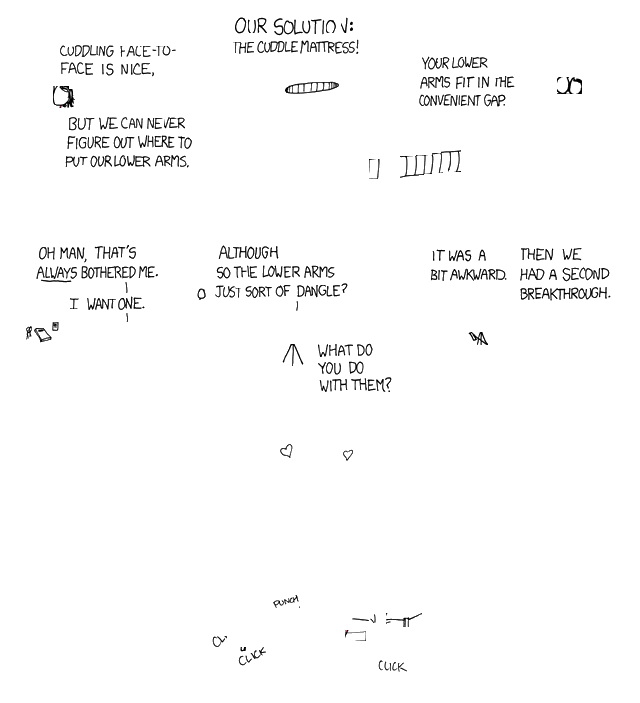 CUDDLING FACE-TO-
FACE IS NICE,
BUT WE CAN NEVER
FIGURE OUT WHERE TO
PUT OUR LOWER ARMS.
OUR SOLUTION:
THE CUDDLE MATTRESS!
YOUR LOWER
ARMS FIT IN THE
CONVENIENT GAP.
OH MAN, THAT'S
ALWAYS BOTHERED ME.
I WANT ONE.
ALTHOUGH
SO THE LOWER ARMS
JUST SORT OF DANGLE?
WHAT DO
YOU DO
WITH THEM?
IT WAS A
BIT AWKWARD.
THEN WE
HAD A SECOND
BREAKTHROUGH.
PUNCH!
CLICK
CLICK